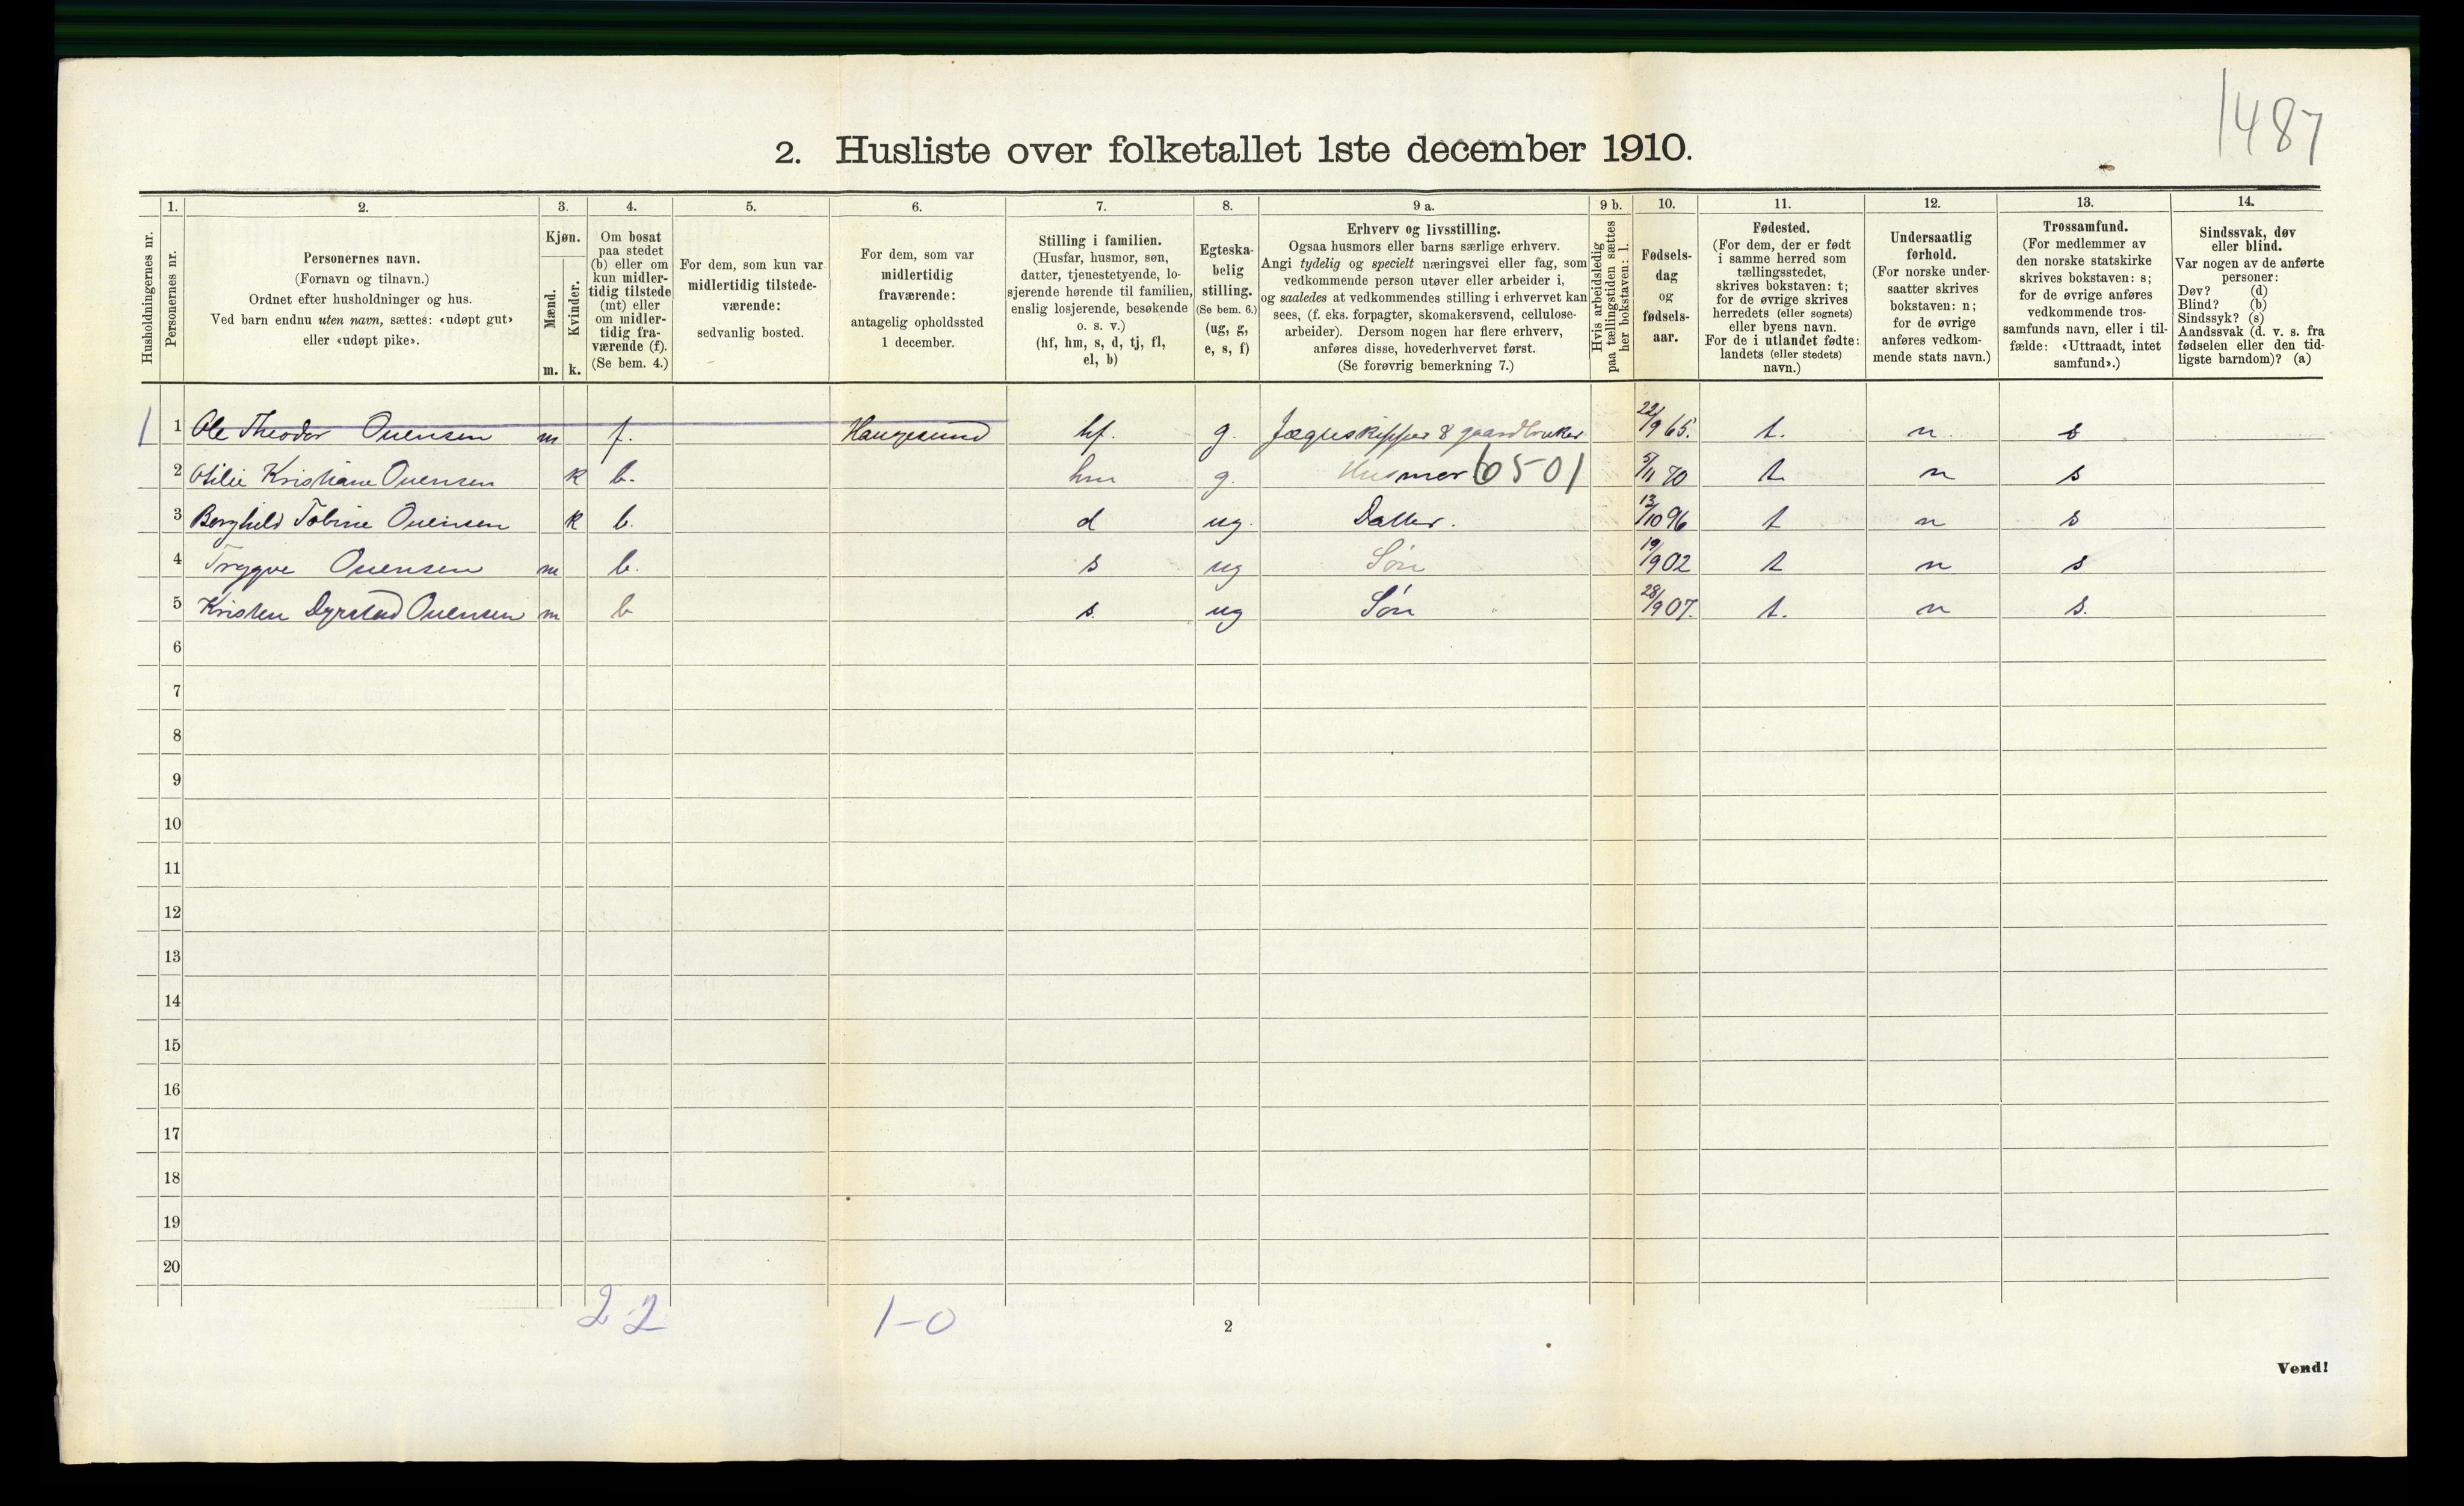 1487
2. Husliste over folketallet 1ste december 1910.
Husholdningernes nr.
1.
Personernes nr.
2.
Personernes navn.
(Fornavn og tilnavn.)
Ordnet efter husholdninger og hus.
Ved barn endnu uten navn, sættes: «udøpt gut»
eller «udøpt pike».
3.
Kjøn.
Mænd.
Kvinder.
m. k.
4.
Om bosat
paa stedet
(b) eller om
kun midler-
tidig tilstede
(mt) eller
om midler-
tidig fra-
værende (f).
(Se bem. 4.)
5.
For dem, som kun var
midlertidig tilstede-
værende:
sedvanlig bosted.
6.
For dem, som var
midlertidig
fraværende:
antagelig opholdssted
1 december.
7.
Stilling i familien.
(Husfar, husmor, søn,
datter, tjenestetyende, lo-
sjerende hørende til familien,
enslig losjerende, besøkende
o. s. v.)
(hf, hm, s, d, tj, fl,
el, b)
8.
Egteska-
belig
stilling.
(Se bem. 6.)
(ug, g,
e, s, f)
9 a.
Erhverv og livsstilling.
Ogsaa husmors eller barns særlige erhverv.
Angi tydelig og specielt næringsvei eller fag, som
vedkommende person utøver eller arbeider i,
og saaledes at vedkommendes stilling i erhvervet kan
sees, (f. eks. forpagter, skomakersvend, cellulose-
arbeider). Dersom nogen har flere erhverv,
anføres disse, hovederhvervet først.
(Se forøvrig bemerkning 7.)
9 b.
Hvis arbeidsledig
paa tællingstiden sættes
her bokstaven: l.
10.
Fødsels-
dag
og
fødsels-
aar.
11.
Fødested.
(For dem, der er født
i samme herred som
tællingsstedet,
skrives bokstaven: t;
for de øvrige skrives
herredets (eller sognets)
eller byens navn.
For de i utlandet fødte:
landets (eller stedets)
navn.)
12.
Undersaatlig
forhold.
(For norske under-
saatter skrives
bokstaven: n;
for de øvrige
anføres vedkom-
mende stats navn.)
13.
Trossamfund.
(For medlemmer av
den norske statskirke
skrives bokstaven: s;
for de øvrige anføres
vedkommende tros-
samfunds navn, eller i til-
fælde: «Uttraadt, intet
samfund».)
14.
Sindssvak, døv
eller blind.
Var nogen av de anførte
personer:
Døv? (d)
Blind? (b)
Sindssyk? (s)
Aandssvak (d. v. s. fra
fødselen eller den tid-
ligste barndom)? (a)
1 1 Ole Theodor Ovensen m f. Haugesund hf. g. Jægteskipper & gaardbruker 22/9 65. t. n. s
2 Otilie Kristiane Ovensen k b. hm g. Husmor 6501 5/11 70 t. n s
3 Borghild Tobine Ovensen k b. d ug. Datter. 13/10 96 t n s
4 Trygve Ovensen m b. s ug Søn 19/9 02 t n s
5 Kristen Dyrstad Ovensen m b s. ug Søn 28/9 07. t. n s.
6
7
8
9
10
11
12
13
14
15
16
17
18
19
20
2 2 1-0
2
Vend!